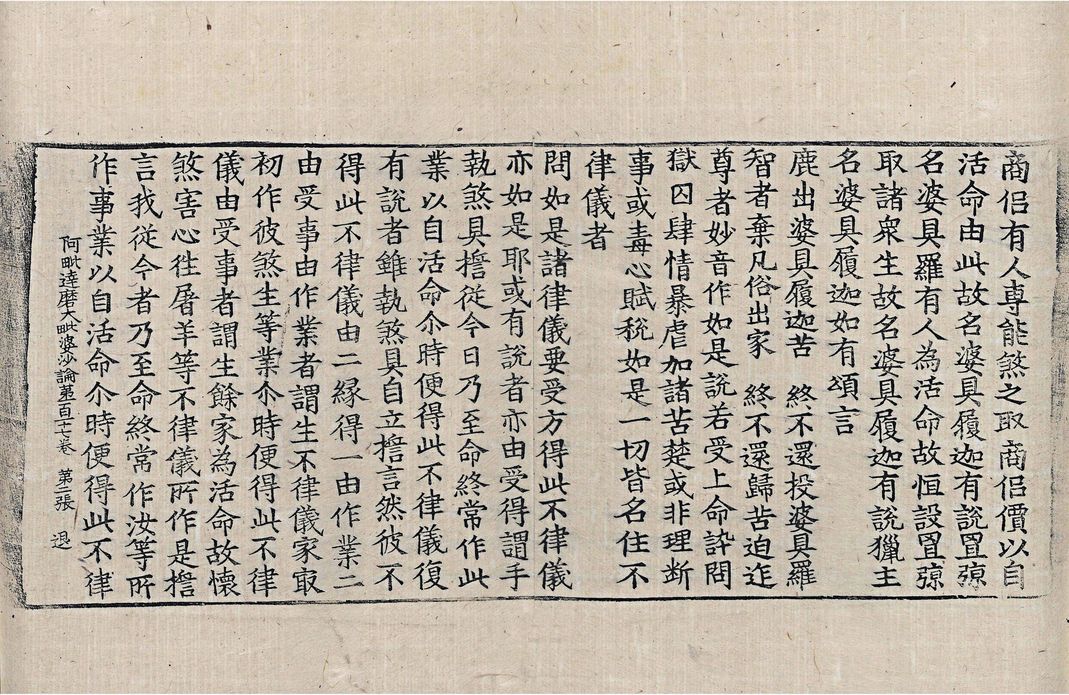 商侣有人專能煞之取商侣價以自
活命由此故名婆具履迦有說罝弶
名婆具羅有人為活命故恒設罝弶
取諸衆生故名婆具履迦有說獵主
名婆具履迦如有頌言
鹿出婆具履迦苦　終不還投婆具羅
智者棄凡俗出家　終不還歸苦迫迮
尊者妙音作如是說若受上命訊問
獄囚肆情暴虐加諸苦楚或非理断
事或毒心賦稅如是一切皆名住不
律儀者
問如是諸律儀要受方得此不律儀
亦如是耶或有說者亦由受得謂手
執煞具擔從今日乃至命終常作此
業以自活命尒時便得此不律儀復
有說者雖執煞具自立擔言然彼不
得此不律儀由二緣得一由作業二
由受事由作業者謂生不律儀家取
初作彼煞生等業尒時便得此不律
儀由受事者謂生餘家為活命故懷
煞害心徃屠羊等不律儀所作是擔
言我從今者乃至命終常作汝等所
作事業以自活命尒時便得此不律
阿毗達磨大毗婆沙論苐百十七卷　第二張　退